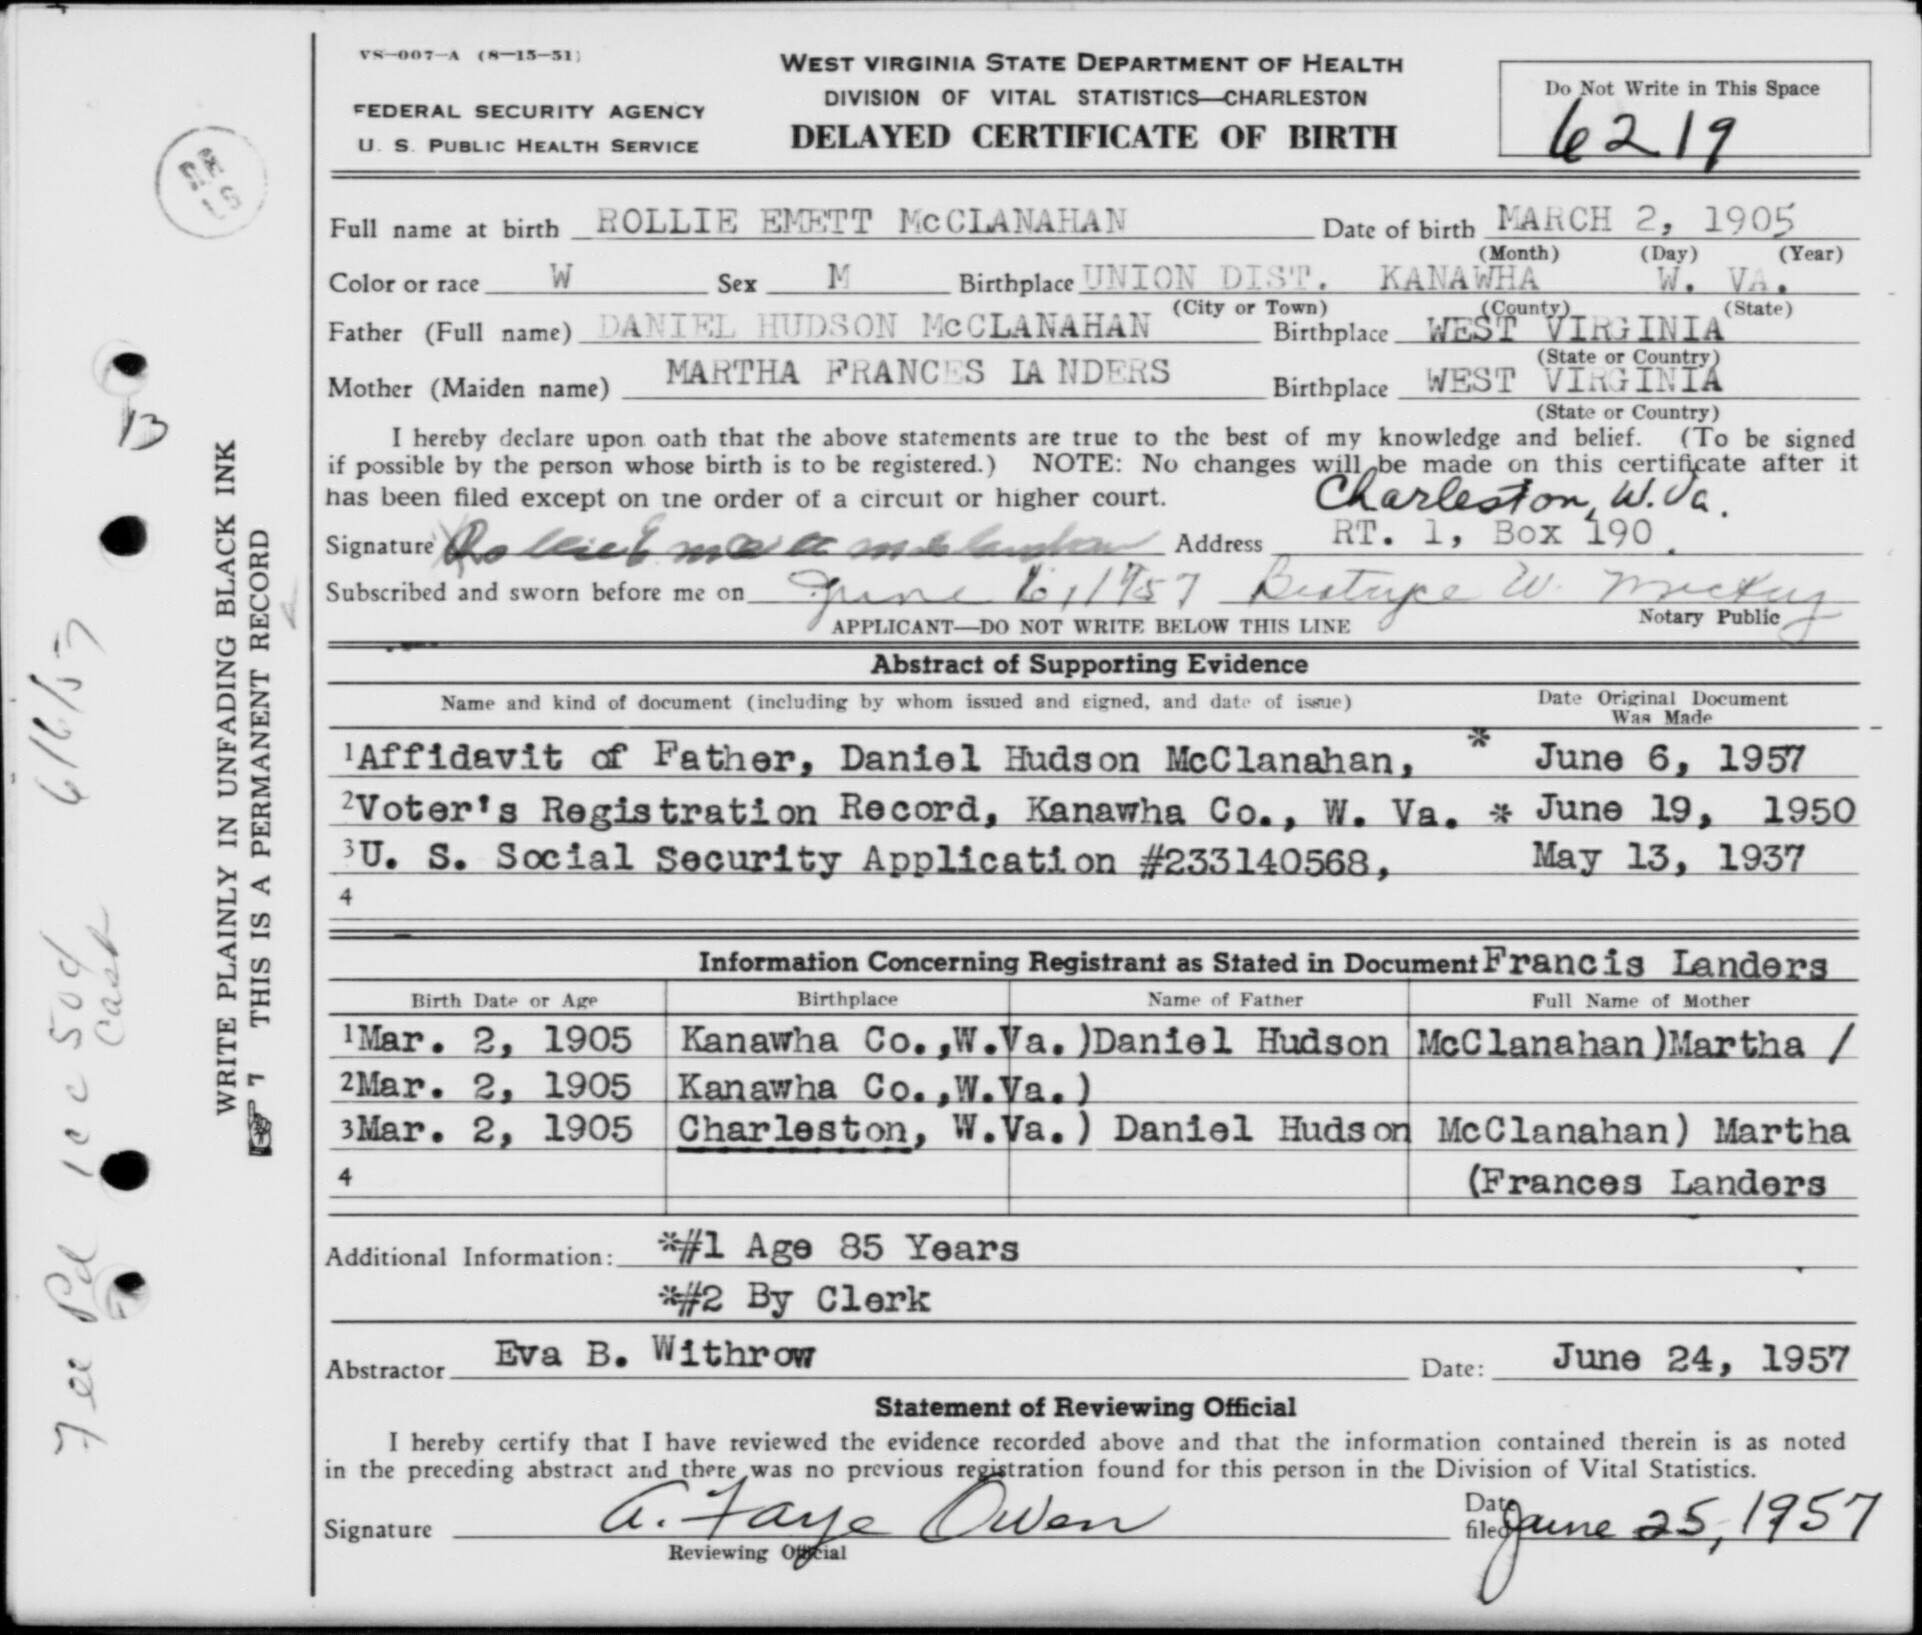 VS-007-A (8-15-51)
WEST VIRGINIA STATE DEPARTMENT OF HEALTH
DIVISION OF VITAL STATISTICS—CHARLESTON
DELAYED CERTIFICATE OF BIRTH
FEDERAL SECURITY AGENCY
U. S. PUBLIC HEALTH SERVICE
Do Not Write in This Space
6219
Full name at birth ROLLIE EMETT McCLANAHAN Date of birth MARCH 2, 1905
(Month) (Day) (Year)
Color or race W Sex M Birthplace UNION DIST. KANAWHA W. VA.
(City or Town) (County) (State)
Father (Full name) DANIEL HUDSON McCLANAHAN Birthplace WEST VIRGINIA
(State or Country)
Mother (Maiden name) MARTHA FRANCES LANDERS Birthplace WEST VIRGINIA
(State or Country)
I hereby declare upon oath that the above statements are true to the best of my knowledge and belief. (To be signed
if possible by the person whose birth is to be registered.) NOTE: No changes will be made on this certificate after it
has been filed except on the order of a circuit or higher court.
Charleston, W. Va.
Signature Address RT. 1, Box 190
Subscribed and sworn before me on June 6, 1957 W.
APPLICANT—DO NOT WRITE BELOW THIS LINE
Notary Public
Abstract of Supporting Evidence
Name and kind of document (including by whom issued and signed, and date of issue) Date Original Document
Was Made
1 Affidavit of Father, Daniel Hudson McClanahan, * June 6, 1957
2 Voter's Registration Record, Kanawha Co., W. Va. * June 19, 1950
3 U. S. Social Security Application #233140568, May 13, 1937
4
Information Concerning Registrant as Stated in Document Francis Landers
Birth Date or Age Birthplace Name of Father Full Name of Mother
1 Mar. 2, 1905 Kanawha Co.,W.Va.)Daniel Hudson McClanahan)Martha /
2 Mar. 2, 1905 Kanawha Co.,W.Va.)
3 Mar. 2, 1905 Charleston, W.Va.) Daniel Hudson McClanahan) Martha
4 (Frances Landers
Additional Information: *#1 Age 85 Years
*#2 By Clerk
Abstractor Eva B. Withrow Date: June 24, 1957
Statement of Reviewing Official
I hereby certify that I have reviewed the evidence recorded above and that the information contained therein is as noted
in the preceding abstract and there was no previous registration found for this person in the Division of Vital Statistics.
Signature A. Faye Owen Date filed June 25, 1957
Reviewing Official
WRITE PLAINLY IN UNFADING BLACK INK
THIS IS A PERMANENT RECORD
13
Fee Pd 50¢ 6/6/57
Cash